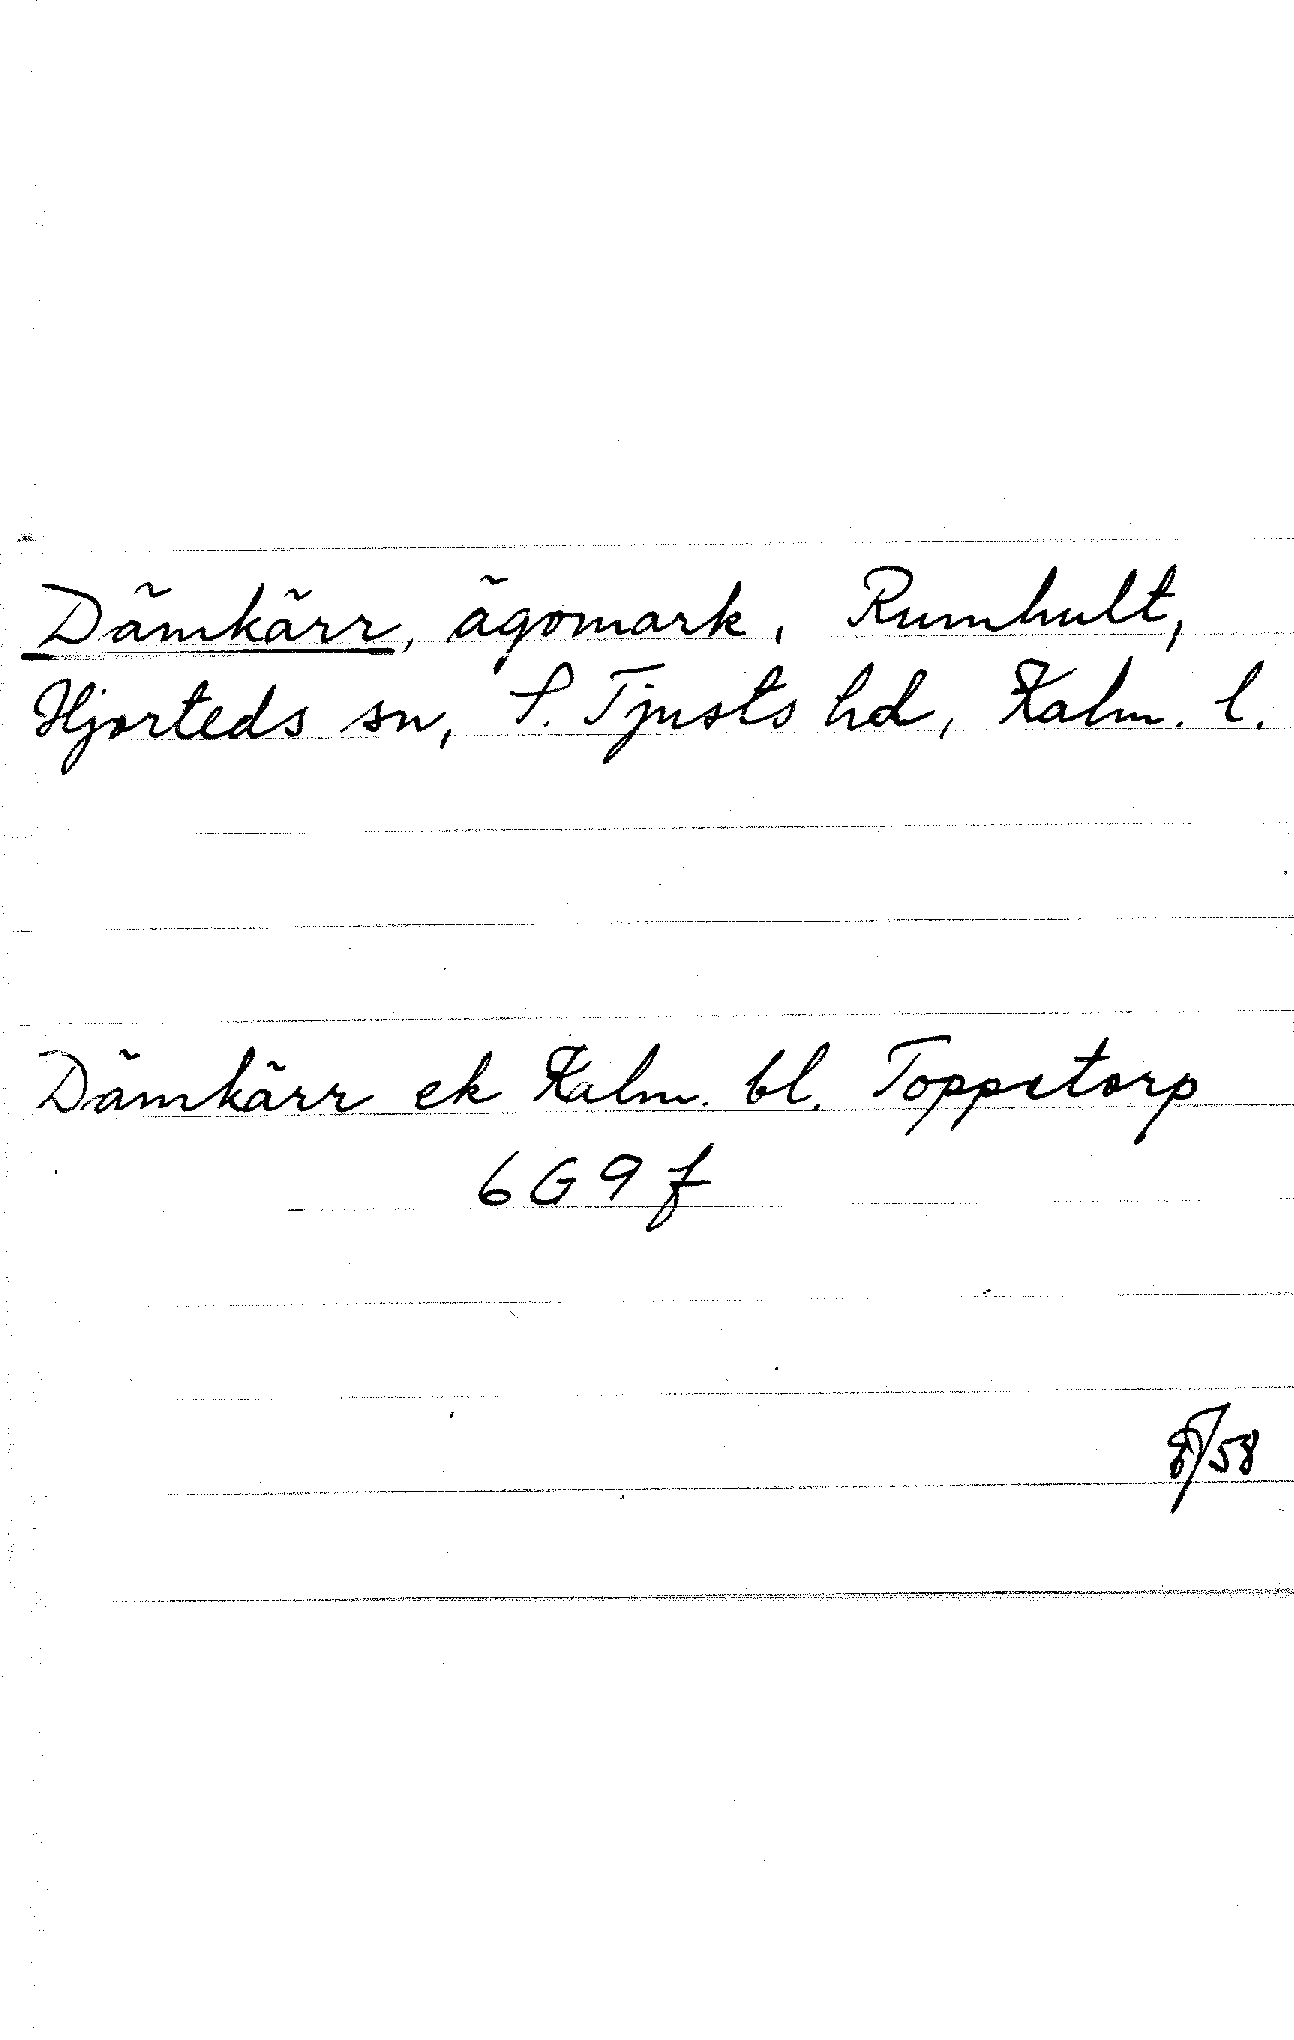 Dämkärr, ägomark, Rumhult,
Hjorteds sn, S. Tjusts hd, Kalm. l.
Dämkärr ek Kalm. bl. Toppstorp
6G9f
/58